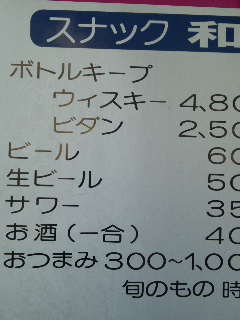 スナック 和
ボトルキープ
ウィスキー 4,80
ビダン 2,50
ビール 60
生ビール 50
サワー 35
お酒(一合) 40
おつまみ 300~1,00
旬のもの 時